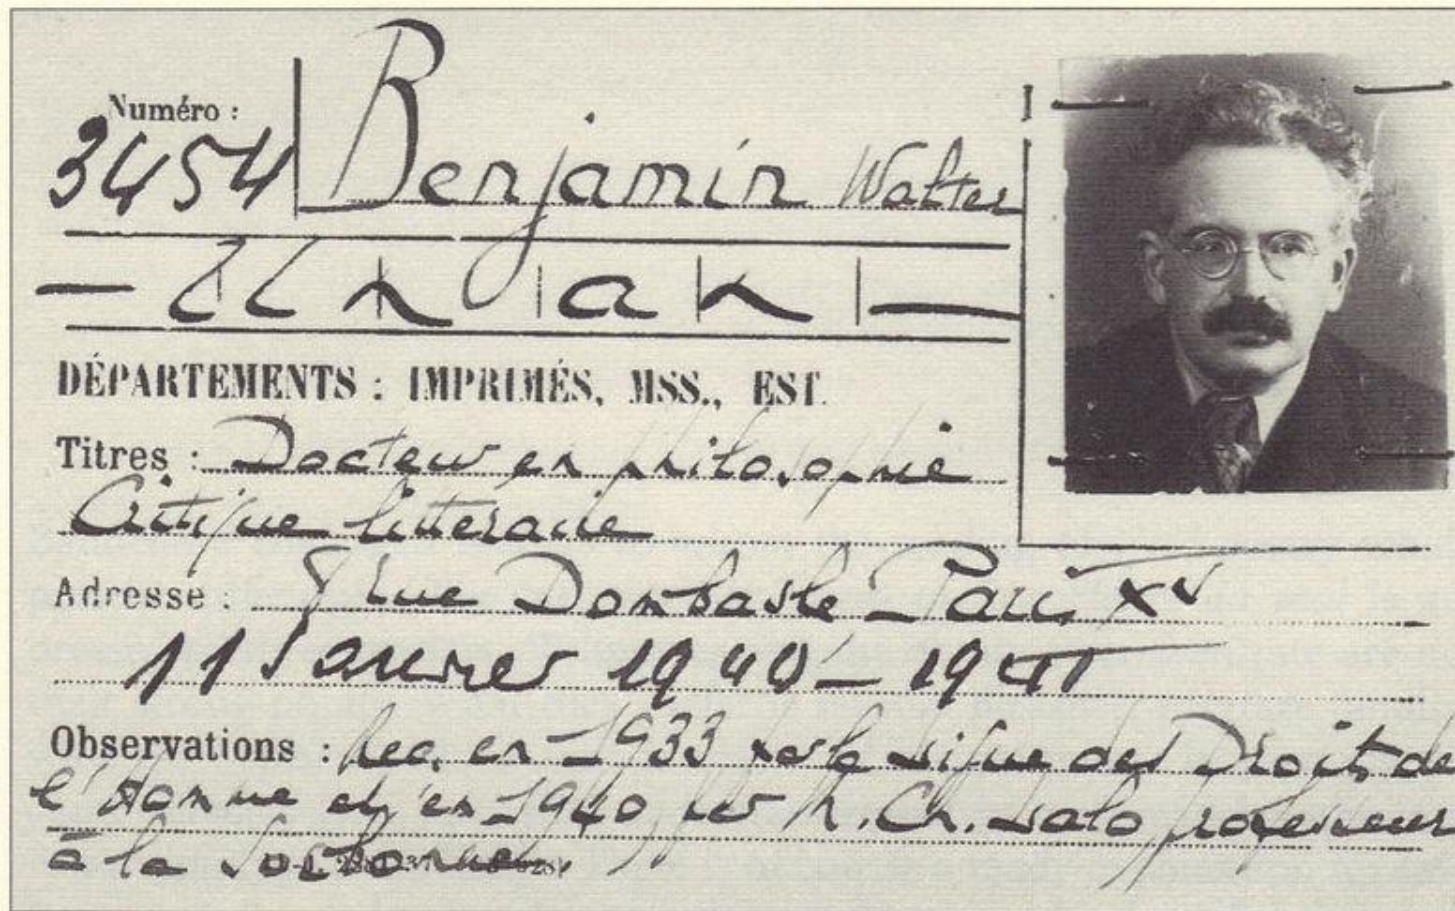 Numéro :
3454 Benjamin Walter
— Un an —
DÉPARTEMENTS : IMPRIMÉS, MSS., EST.
Titres : Docteur en philosophie
Critique litteraire
Adresse : rue Dombasle — Paris XV
11 Janvier 1940 — 1941
Observations : Rec. en 1933 par la Ligue des Droits de
l'Homme et en 1940 par M. Ch. Lalo professeur
à la Sorbonne